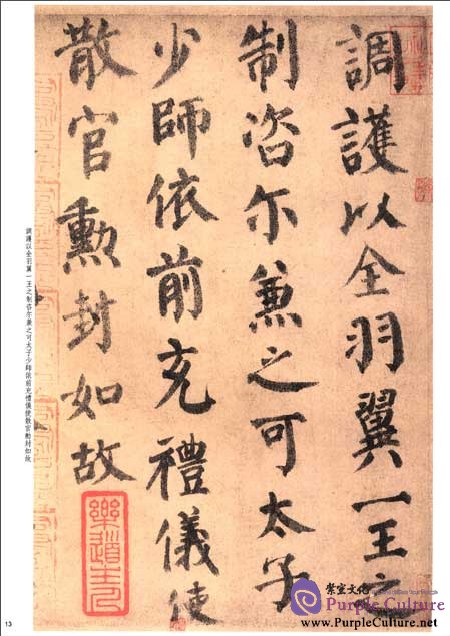 調護以全羽翼一王之
制咨尔兼之可太子
少師依前充禮儀使
散官勳封如故
樂道主人
調護以全羽翼一王之制咨尔兼之可太子少師依前充禮儀使散官勳封如故
13
Purple Culture
www.PurpleCulture.net